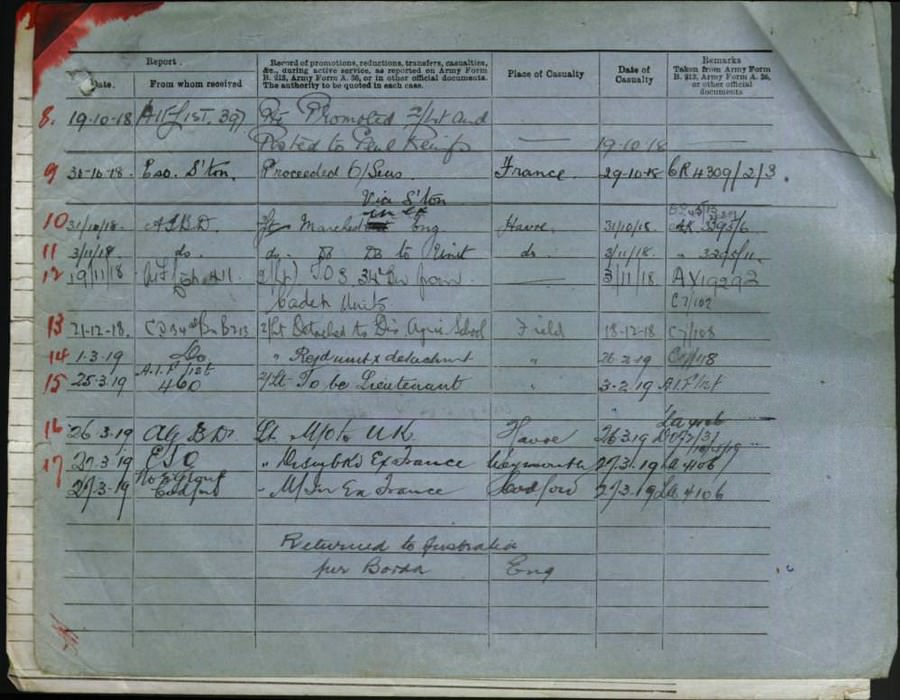 Report.
Record of promotions, reductions, transfers, casualties,
&c., during active service, as reported on Army Form
B. 213, Army Form A. 36, or in other official documents.
The authority to be quoted in each case.
Place of Casualty
Date of
Casualty
Remarks
Taken from Army Form
B. 213, Army Form A. 36,
or other official
documents
Date.
From whom received
8. 19-10-18 A.I.F. List. 397 Promoted 2/Lt and
Posted to Genl Reinfs — 19.10.18 —
9 30-10-18. Eso. S'ton. Proceeded O/Seas France. 29-10-18 CR 4309/2/3.
Via S'ton
10 31/10/18. A.I.B.D. Marched in ex Eng Havre. 31/10/18 3295/6
11 3/11/18. do. do. to Unit do 3/11/18. " 3295/11.
12 19/11/18 2/Lt T.O.S. 34th Bn from — 3/11/18 AY19292
Cadet Units. C7/102
13 21-12-18. CO 34th Bn B213 2/Lt Detached to Div Agric School Field 18-12-18 C7/108
14 1.3.19 Do. " Rejd unit x detachment " 26-2-19 118
15 25.3.19 A.I.F. List 460 2/Lt To be Lieutenant " 3-2-19 A.I.F. list
La 4106
16 26.3.19 AGBD Lt. M/O to U.K. Havre 26.3.19
17 27.3.19 ESO " Disembkd Ex France Weymouth 27.3.19 La 4106
27.3.19 No 2 Group Codford " M/In Ex France Codford 27.3.19 La 4106
Returned to Australia
per Borda Eng